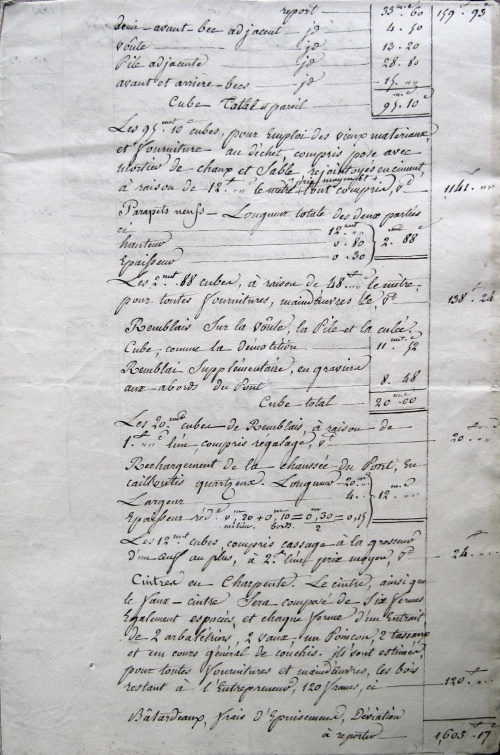 report 33 m.c 60 159 f 93 c
demi-avant-bec adjacent jd 4. 50
voûte jd 13. 20
Pile adjacente jd 28. 80
avant et arriere-becs jd 15. ""
Cube Total pareil 95 m.c 10 c
Les 95 mèt 10 c cubes, pour Emploi des vieux matériaux,
et fourniture au déchet, compris pose avec
mortier de chaux et Sable rejointoyés en ciment,
à raison de 12 f "" le mètre prix moyen, tout compris, ct 1141. ""
Parapets neufs - Longueur totale des deux parties
ci 12 m ""
hauteur 0. 80 2. 88 c
Epaisseur 0. 30
Les 2 mèt 88 cubes, à raison de 48 f "" le mètre,
pour toutes fournitures, maindœuvres &c, ct 138 f 24
Remblais Sur la Voûte, la Pile et la culée.
Cube, comme la démolition 11 mt. c 52
Remblai Supplémentaire, en gravier
aux abords du Pont 8. 48
Cube total 20 m.c 00
Les 20 mèt cubes de Remblais, à raison de
1 f "" c l'un, compris régalage, ct 20 f ""
Rechargement de la chaussée du Pont, en
cailloutis quartzeux. Longueur 20 m ""
Largeur 4. "" 12. ""
Epaisseur réd. e 0, m 20 + 0, m 10 = 0, m 30 = 0,15
milieu bords. 2
Les 12 mèt cubes compris cassage à la grosseur
d'un œuf au plus, à 2 f l'un prix moyen, ct 24 f ""
Cintres en Charpente. Le cintre, ainsi que
le Faux-cintre Sera composé de Six fermes
Egalement espacées, et chaque ferme d'un Entrait,
de 2 arbalétriers, 2 vaux, un Poinçon, 2 tasseaux
et un cours général de couchis. ils sont estimés,
pour toutes fournitures et maindœuvres, les bois
restant à l'Entrepreneur, 120 francs, ci 120 f ""
Bâtardeaux, frais d'Epuisement, Déviation
à reporter 1,603 f 17 c